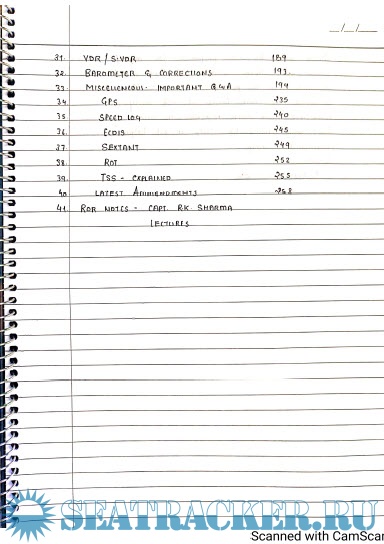 _/_/_
31. VDR / S.VDR 189
32. BAROMETER & CORRECTIONS 193
33. MISCELLENEOUS. IMPORTANT Q&A 194
34. GPS 235
35. SPEED LOG 240
36. ECDIS 245
37. SEXTANT 249
38. ROT 252
39. TSS - EXPLAINED 255
40. LATEST AMMENDMENTS 258
41. ROR NOTES - CAPT. RK. SHARMA
LECTURES
SEATRACKER.RU
Scanned with CamScan